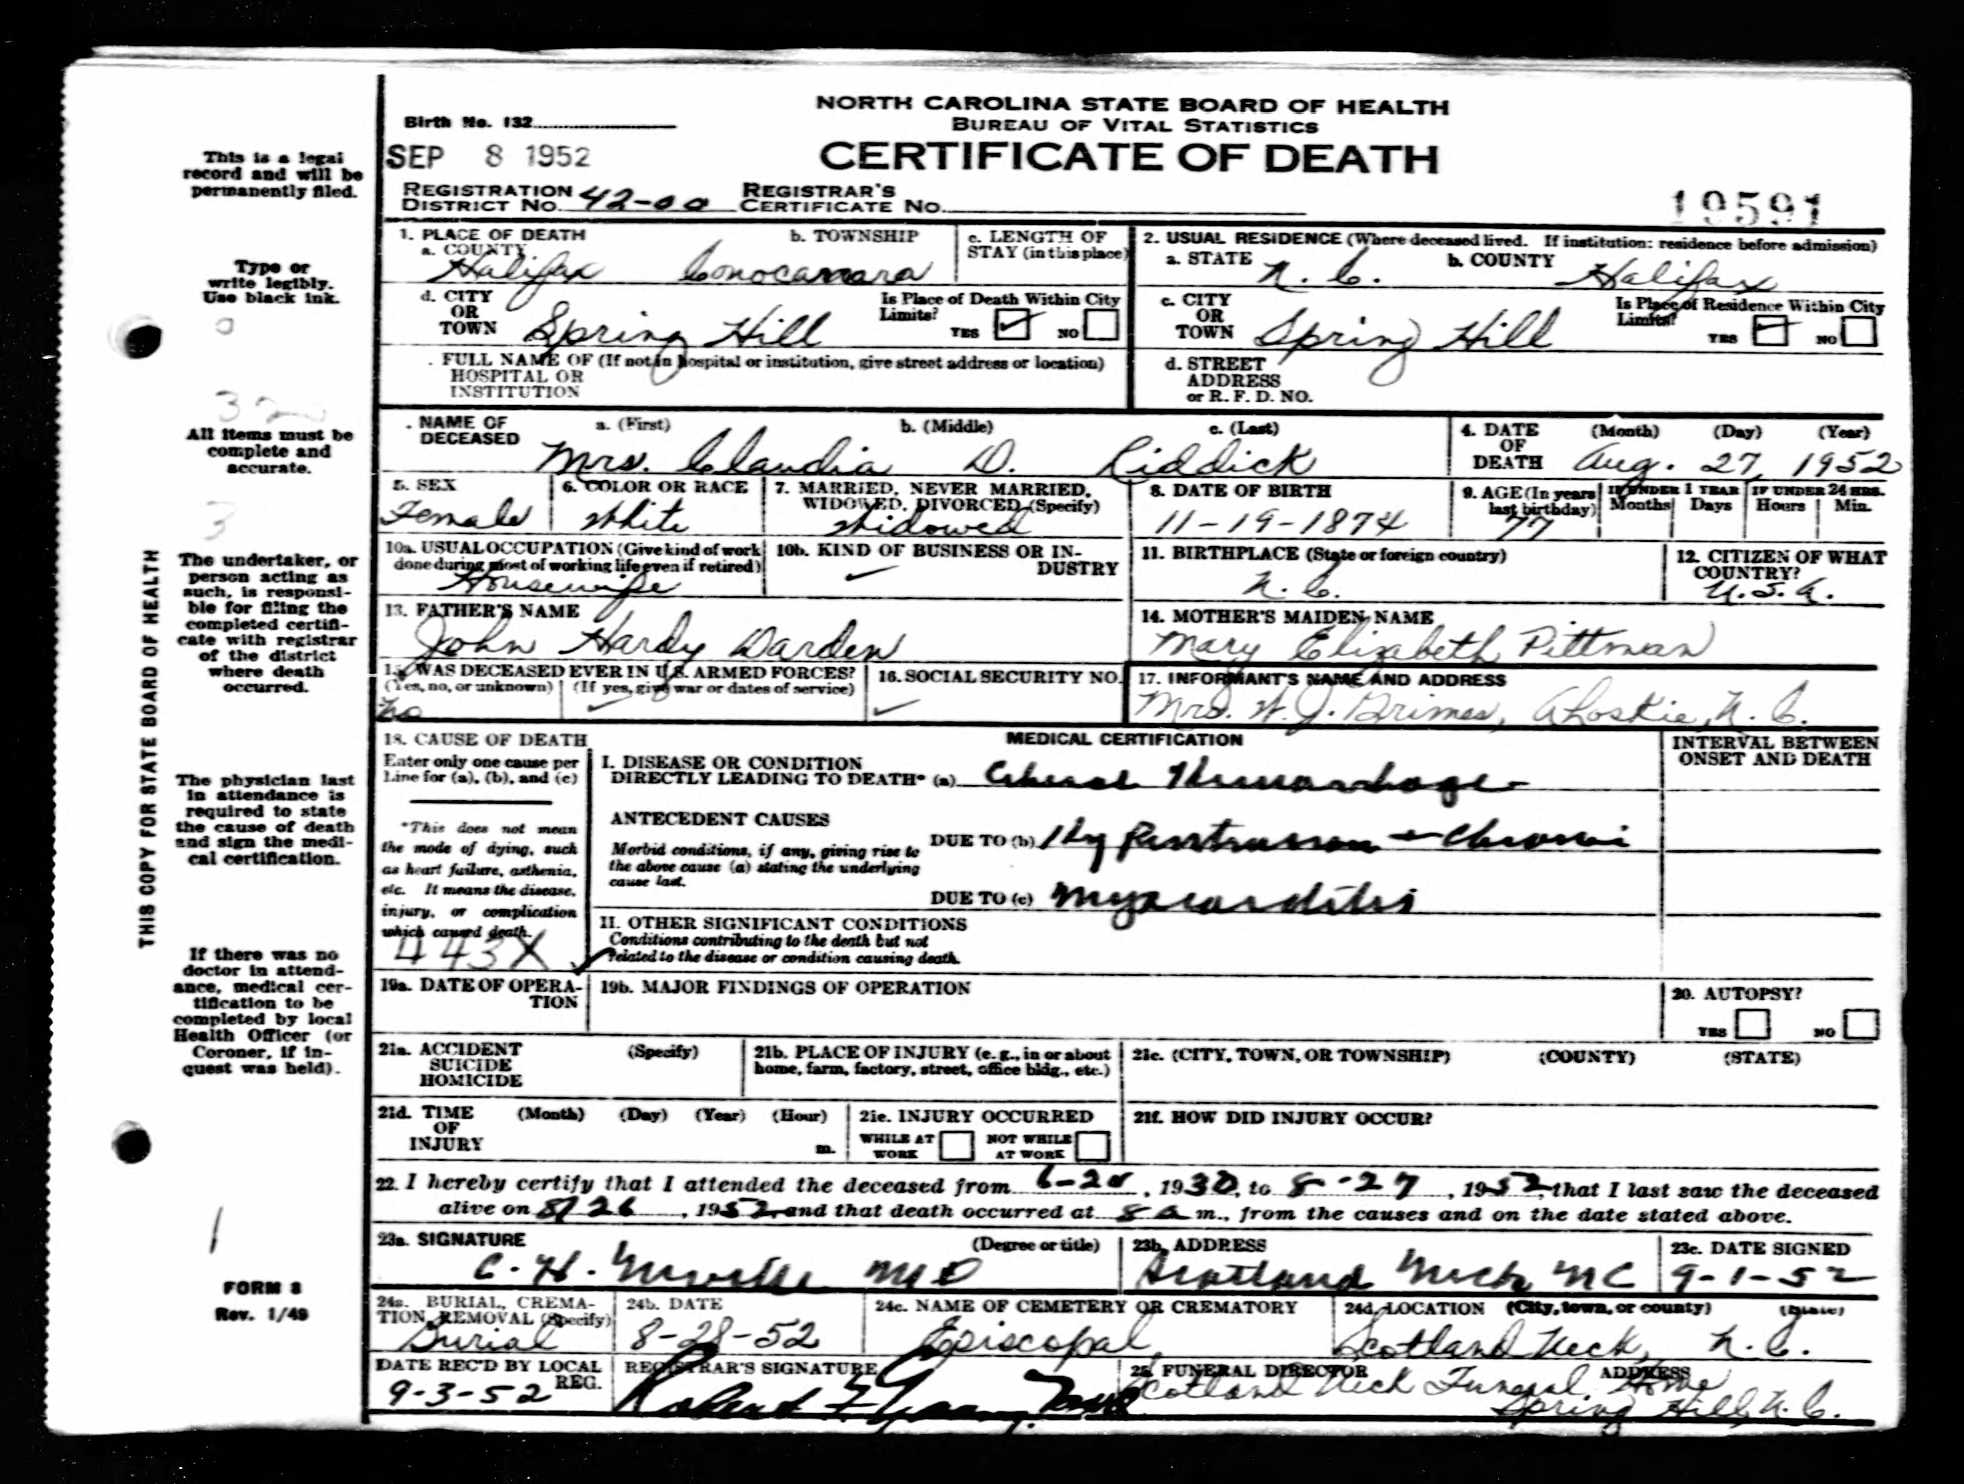 NORTH CAROLINA STATE BOARD OF HEALTH
BUREAU OF VITAL STATISTICS
CERTIFICATE OF DEATH
Birth No. 132
SEP 8 1952
REGISTRATION DISTRICT NO. 42-00 REGISTRAR'S CERTIFICATE NO.
19591
This is a legal
record and will be
permanently filed.
Type or
write legibly.
Use black ink.
0
32
All items must be
complete and
accurate.
3
The undertaker, or
person acting as
such, is responsi-
ble for filing the
completed certifi-
cate with registrar
of the district
where death
occurred.
The physician last
in attendance is
required to state
the cause of death
and sign the medi-
cal certification.
If there was no
doctor in attend-
ance, medical cer-
tification to be
completed by local
Health Officer (or
Coroner, if in-
quest was held).
1
FORM 8
Rev. 1/49
THIS COPY FOR STATE BOARD OF HEALTH
1. PLACE OF DEATH
a. COUNTY Halifax
b. TOWNSHIP Conocanara
c. LENGTH OF STAY (in this place)
d. CITY OR TOWN Spring Hill
Is Place of Death Within City Limits? YES ✓ NO
FULL NAME OF (If not in hospital or institution, give street address or location)
HOSPITAL OR
INSTITUTION
2. USUAL RESIDENCE (Where deceased lived. If institution: residence before admission)
a. STATE N. C.
b. COUNTY Halifax
c. CITY OR TOWN Spring Hill
Is Place of Residence Within City Limits? YES ✓ NO
d. STREET
ADDRESS
or R. F. D. NO.
. NAME OF DECEASED
a. (First) b. (Middle) c. (Last)
Mrs. Claudia D. Riddick
4. DATE OF DEATH (Month) (Day) (Year)
Aug. 27, 1952
5. SEX
Female
6. COLOR OR RACE
White
7. MARRIED, NEVER MARRIED, WIDOWED, DIVORCED (Specify)
Widowed
8. DATE OF BIRTH
11-19-1874
9. AGE (In years last birthday)
77
IF UNDER 1 YEAR
Months Days
IF UNDER 24 HRS.
Hours Min.
10a. USUAL OCCUPATION (Give kind of work done during most of working life even if retired)
Housewife
10b. KIND OF BUSINESS OR INDUSTRY
✓
11. BIRTHPLACE (State or foreign country)
N. C.
12. CITIZEN OF WHAT COUNTRY?
U. S. A.
13. FATHER'S NAME
John Hardy Darden
14. MOTHER'S MAIDEN NAME
Mary Elizabeth Pittman
15. WAS DECEASED EVER IN U.S. ARMED FORCES?
(Yes, no, or unknown) (If yes, give war or dates of service)
No ✓
16. SOCIAL SECURITY NO.
✓
17. INFORMANT'S NAME AND ADDRESS
Mrs. W. J. Grimes, Ahoskie, N. C.
18. CAUSE OF DEATH
Enter only one cause per
line for (a), (b), and (c)
*This does not mean
the mode of dying, such
as heart failure, asthenia,
etc. It means the disease,
injury, or complication
which caused death.
443X
MEDICAL CERTIFICATION
INTERVAL BETWEEN
ONSET AND DEATH
I. DISEASE OR CONDITION
DIRECTLY LEADING TO DEATH* (a) Cerebral Hemorrhage
ANTECEDENT CAUSES
Morbid conditions, if any, giving rise to
the above cause (a) stating the underlying
cause last.
DUE TO (b) Hypertension + Chronic
DUE TO (c) Myocarditis
II. OTHER SIGNIFICANT CONDITIONS
Conditions contributing to the death but not
related to the disease or condition causing death.
19a. DATE OF OPERATION
19b. MAJOR FINDINGS OF OPERATION
20. AUTOPSY?
YES NO
21a. ACCIDENT SUICIDE HOMICIDE (Specify)
21b. PLACE OF INJURY (e. g., in or about home, farm, factory, street, office bldg., etc.)
21c. (CITY, TOWN, OR TOWNSHIP) (COUNTY) (STATE)
21d. TIME OF INJURY (Month) (Day) (Year) (Hour) m.
21e. INJURY OCCURRED
WHILE AT WORK NOT WHILE AT WORK
21f. HOW DID INJURY OCCUR?
22. I hereby certify that I attended the deceased from 6-20, 1930, to 8-27, 1952, that I last saw the deceased
alive on 8/26, 1952, and that death occurred at 8 a m., from the causes and on the date stated above.
23a. SIGNATURE (Degree or title)
C. H. MD
23b. ADDRESS
Scotland Neck NC
23c. DATE SIGNED
9-1-52
24a. BURIAL, CREMATION, REMOVAL (Specify)
Burial
24b. DATE
8-28-52
24c. NAME OF CEMETERY OR CREMATORY
Episcopal
24d. LOCATION (City, town, or county) (State)
Scotland Neck, N. C.
DATE REC'D BY LOCAL REG.
9-3-52
REGISTRAR'S SIGNATURE
Robert F.
25. FUNERAL DIRECTOR ADDRESS
Scotland Neck Funeral Home
Spring Hill, N. C.